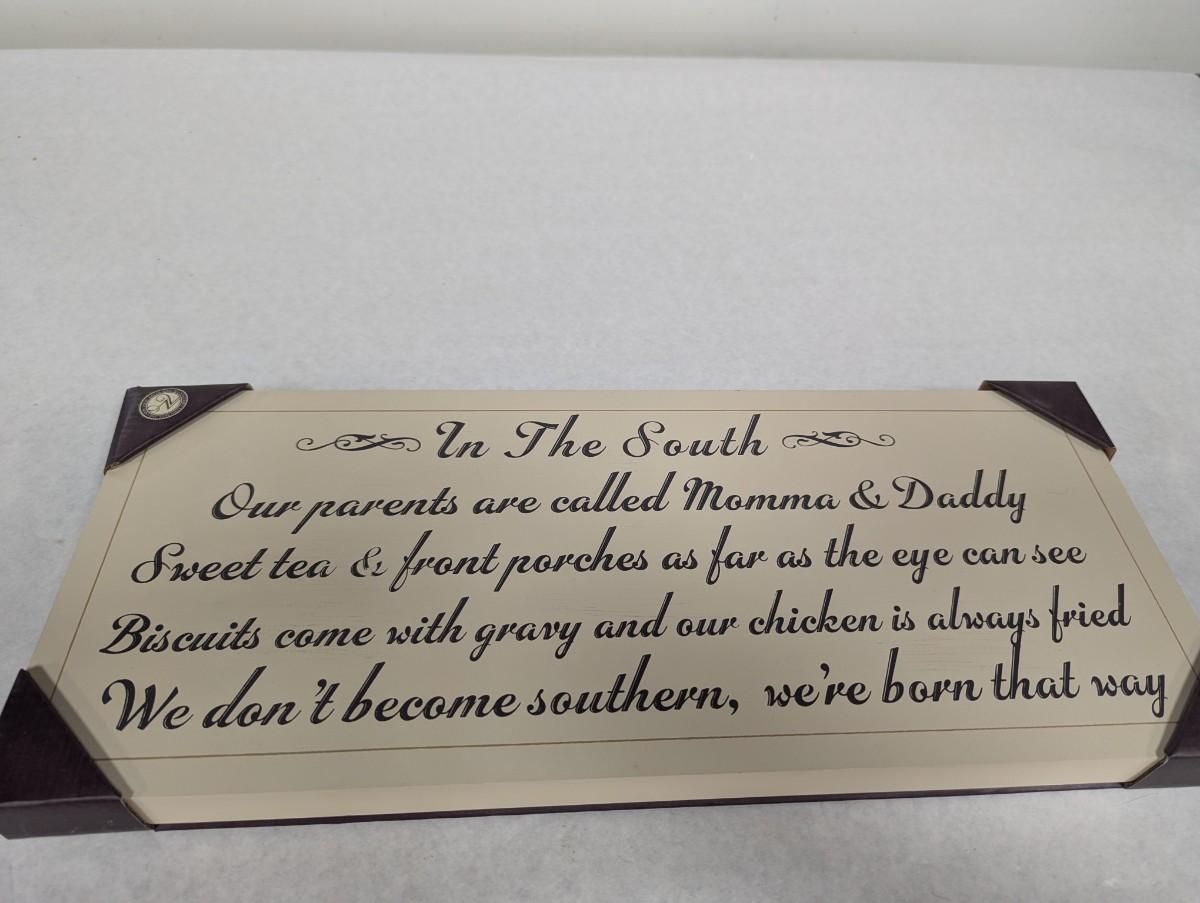 In The South
Our parents are called Momma & Daddy
Sweet tea & front porches as far as the eye can see
Biscuits come with gravy and our chicken is always fried
We don't become southern, we're born that way